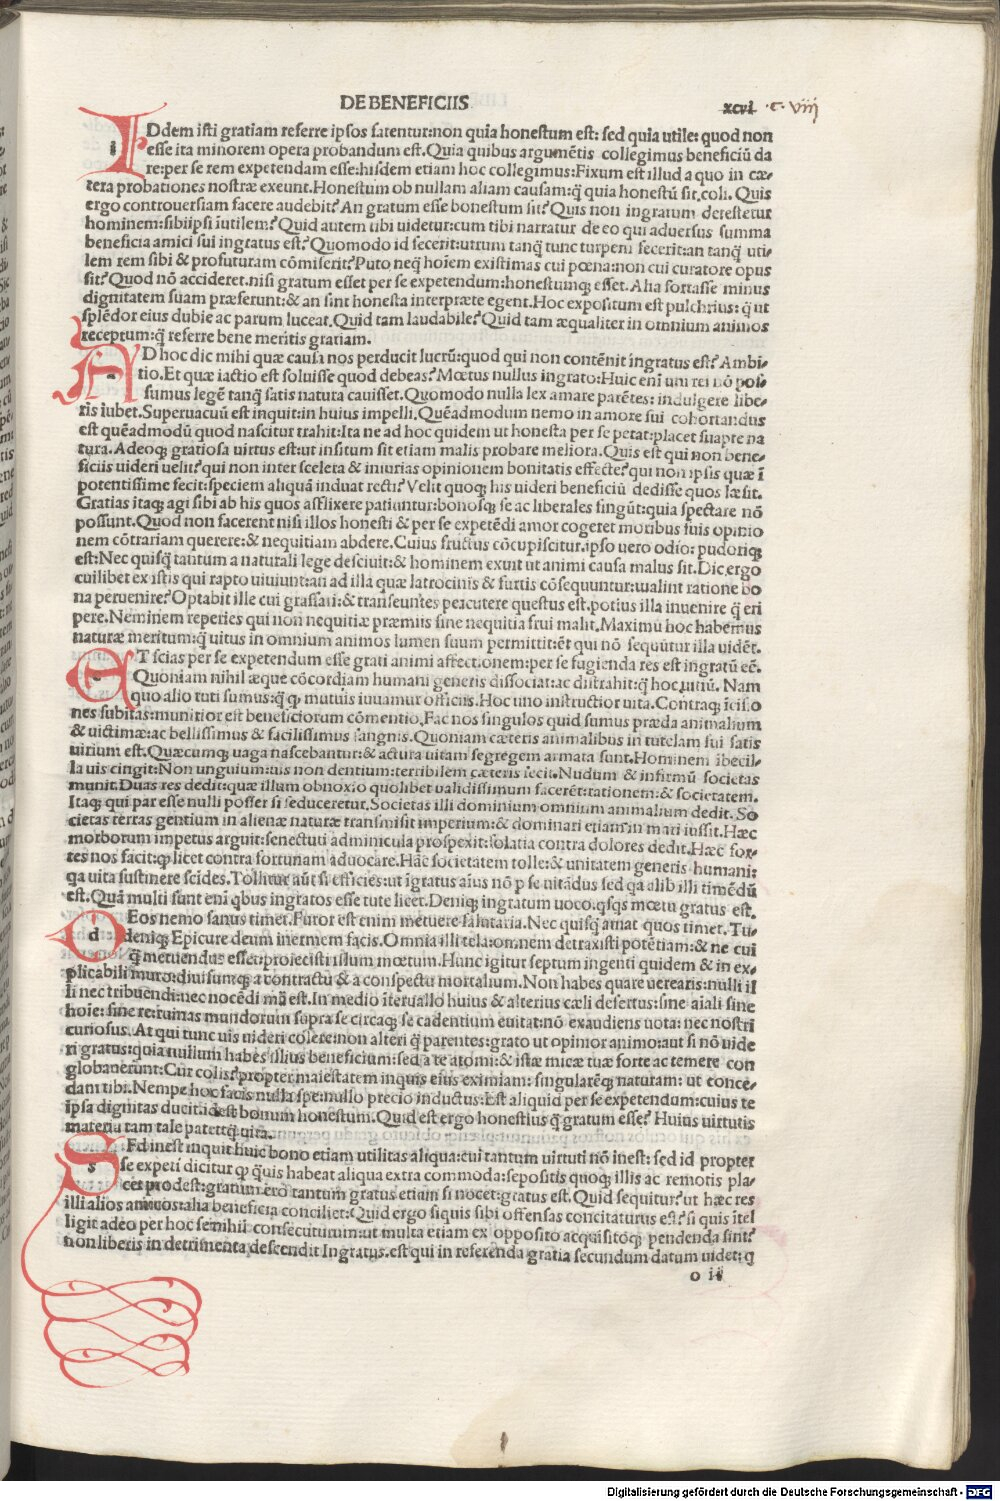 DE BENEFICIIS
xcvi .c. viij
IDdem isti gratiam referre ipsos fatentur:non quia honestum est: sed quia utile: quod non
esse ita minorem opera probandum est.Quia quibus argumētis collegimus beneficiū da
re:per se rem expetendam esse:hisdem etiam hoc collegimus:Fixum est illud a quo in cæ-
tera probationes nostræ exeunt.Honestum ob nullam aliam causam:q̄ quia honestū sit.coli. Quis
ergo controuersiam facere audebit? An gratum esse honestum sit? Quis non ingratum detestetur
hominem:sibiipsi īutilem? Quid autem tibi uidetur:cum tibi narratur de eo qui aduersus summa
beneficia amici sui ingratus est? Quomodo id fecerit:utrum tanq̄ tunc turpem fecerit:an tanq̄ uti-
lem rem sibi & profuturam cōmiserit? Puto neq; hoīem existimas cui pœna:non cui curatore opus
sit? Quod nō accideret.nisi gratum esset per se expetendum:honestumq; esset. Alia fortasse minus
dignitatem suam præferunt:& an sint honesta interpræte egent.Hoc expositum est pulchrius: q̄ ut
splēdor eius dubie ac parum luceat.Quid tam laudabile? Quid tam æqualiter in omnium animos
receptum:q̄ referre bene meritis gratiam.
AD hoc dic mihi quæ causa nos perducit lucrū:quod qui non contēnit ingratus est? Ambi-
tio.Et quæ iactio est soluisse quod debeas? Mœtus nullus ingrato:Huic enī uni rei nō pos-
sumus legē tanq̄ satis natura cauisset. Quomodo nulla lex amare parētes: indulgere libe-
ris iubet.Superuacuū est inquit:in huius impelli. Quēadmodum nemo in amore sui cohortandus
est quēadmodū quod nascitur trahit:Ita ne ad hoc quidem ut honesta per se petat:placet suapte na
tura.Adeoq; gratiosa uirtus est:ut insitum sit etiam malis probare meliora.Quis est qui non bene-
ficiis uideri uelit? qui non inter scelera & iniurias opinionem bonitatis effecte? qui non ipsis quæ ī
potentissime fecit:speciem aliquā induat recti? Velit quoq; his uideri beneficiū dedisse quos læsit.
Gratias itaq; agi sibi ab his quos afflixere patiuntur:bonosq; se ac liberales singūt:quia spectare nō
possunt.Quod non facerent nisi illos honesti & per se expetēdi amor cogeret moribus suis opinio
nem cōtrariam querere:& nequitiam abdere.Cuius fructus cōcupiscitur.ipso uero odio: pudoriq;
est:Nec quisq̄ tantum a naturali lege desciuit:& hominem exuit ut animi causa malus sit.Dic ergo
cuilibet ex istis qui rapto uiuiunt:an ad illa quæ latrocinis & furtis cōsequuntur:walint ratione bo
na peruenire? Optabit ille cui grassari:& transeuntes percutere questus est.potius illa inuenire q̄ eri
pere.Neminem reperies qui non nequitiæ præmiis sine nequitia frui malit.Maximū hoc habemus
naturæ meritum:q̄ uitus in omnium animos lumen suum permittit:ēt qui nō sequūtur illa uidēt.
ET scias per se expetendum esse grati animi affectionem:per se fugienda res est ingratū eē.
Quoniam nihil æque cōcordiam humani generis dissociat:ac distrahit:q̄ hoc uitiū. Nam
quo alio tuti sumus:q̄ q; mutuis iuuamur officiis.Hoc uno instructior uita.Contraq; īcisio
nes subitas:munitior est beneficiorum cōmentio.Fac nos singulos quid sumus præda animalium
& uictimæ:ac bellissimus & facilissimus sangnis.Quoniam cæteris animalibus in tutelam sui satis
uirium est.Quæcumq; uaga nascebantur:& actura uitam segregem armata sunt.Hominem ībecil-
la uis cingit:Non unguium:uis non dentium:terribilem cæteris fecit.Nudum & infirmū societas
munit.Duas res dedit:quæ illum obnoxio quolibet ualidissimum facerēt:rationem:& societatem.
Itaq; qui par esse nulli posset si seduceretur.Societas illi dominium omnium animalium dedit. So
cietas terras gentium in alienæ naturæ transmisit imperium:& dominari etiam in mari iussit.Hæc
morborum impetus arguit:senectuti adminicula prospexit:solatia contra dolores dedit.Hæc for-
tes nos facit:q; licet contra fortunam aduocare.Hāc societatem tolle:& unitatem generis humani:
qa uita sustinere scides.Tollitur aūt si efficies:ut īgratus aīus nō p se uitādus sed qa alib illi timēdū
est.Quā multi sunt enī qbus ingratos esse tute licet.Deniq; ingratum uoco.qsqs mœtu gratus est.
DEos nemo sanus timet.Furor est enim metuere salutaria.Nec quisq̄ amat quos timet. Tu-
deniq; Epicure deum inermem facis.Omnia illi tela:omnem detraxisti potētiam:& ne cui
q̄ metuendus esset:proiecisti illum mœtum.Hunc igitur septum ingenti quidem & in ex-
plicabili muro:diuisumq; a contractū & a conspectu mortalium.Non habes quare uerearis:nulli il
li nec tribuendi:nec nocēdi mā est.In medio īteruallo huius & alterius cæli desertus:sine aīali sine
hoīe: sine re:ruinas mundorum supra se circaq; se cadentium euitat:nō exaudiens uota: nec nostri
curiosus. At qui tunc uis uideri colere:non alteri q̄ parentes:grato ut opinor animo:aut si nō uide
ri gratus:quia nullum habes illius beneficium:sed a te atomi:& istæ micæ tuæ forte ac temere con
globauerunt:Cur colis? propter maiestatem inquis eius eximiam: singularēq; naturam: ut conce-
dam tibi.Nempe hoc facis nulla spe:nullo precio inductus:Est aliquid per se expetendum:cuius te
ipsa dignitas ducit:idest bonum honestum. Quid est ergo honestius q̄ gratum esse? Huius uirtutis
materia tam late patet:tq̄ uita.
SEd inest inquit huic bono etiam utilitas aliqua:cui tantum uirtuti nō inest: sed id propter
se expeti dicitur q; q̄uis habeat aliqua extra commoda:sepositis quoq; illis ac remotis pla-
cet:prodest:gratum ero tantum gratus etiam si nocet:gratus est.Quid sequitur? ut hæc res
illi alios amicos:alia beneficia conciliet:Quid ergo siquis sibi offensas concitaturus est? si quis ītel
ligit adeo per hoc se nihil consecuturum:ut multa etiam ex opposito acquisitoq; pendenda sint?
non liberis in detrimenta descendit Ingratus.est qui in referenda gratia secundum datum uidet: q
o ii
Digitalisierung gefördert durch die Deutsche Forschungsgemeinschaft - DFG